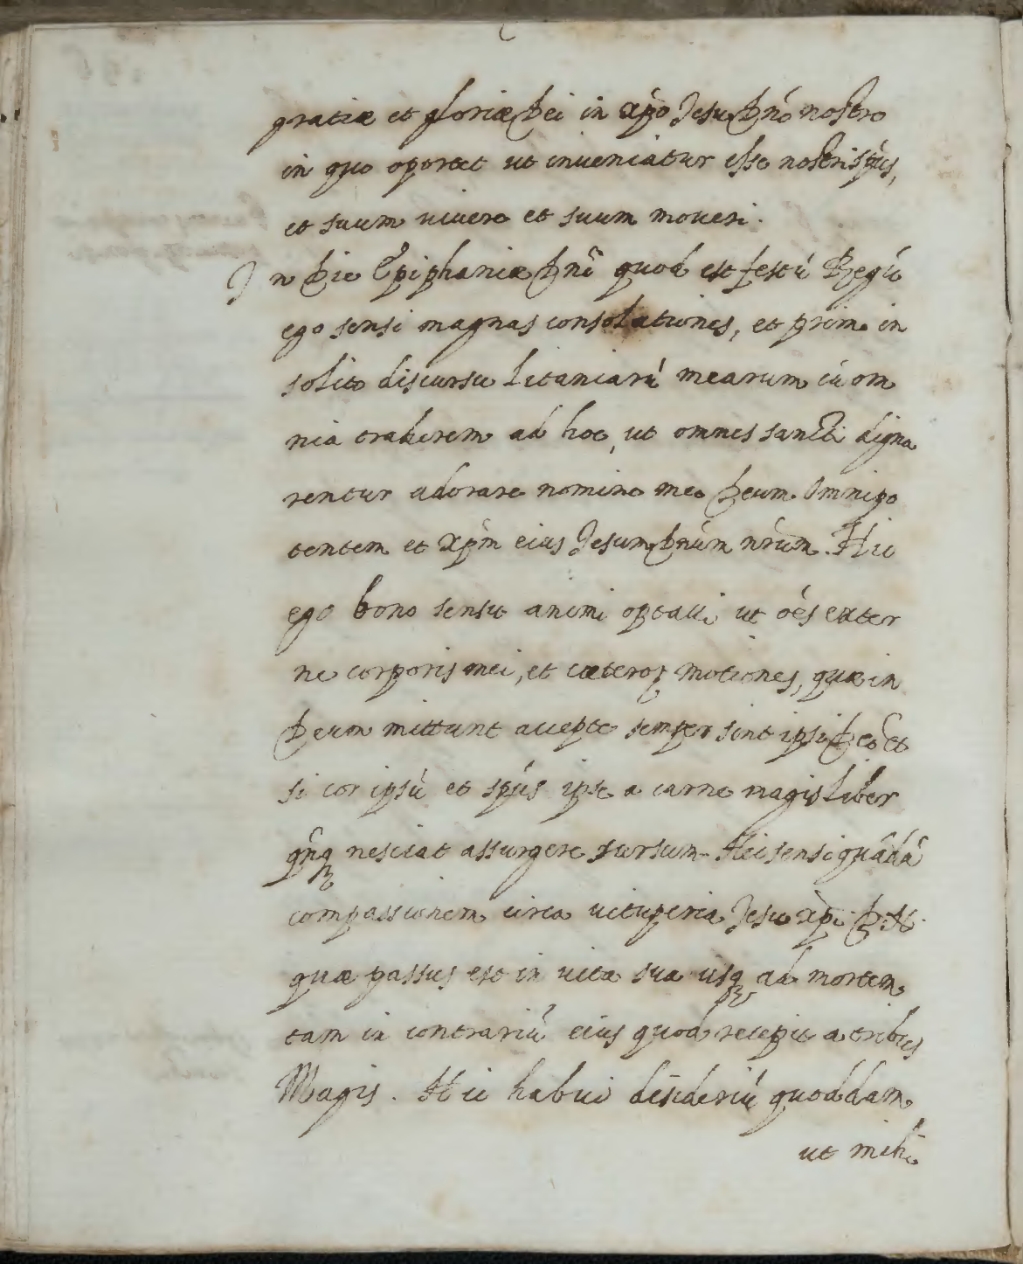 gratiæ et gloriæ Dei in xp̃o Jesu Dnõ nostro
in quo oportet ut inveniatur esse nostri sp̃us,
et suum vivere et suum moveri.
In Die Epiphaniæ Dnĩ quod est festũ Regũ
ego sensi magnas consolationes, et prim. in
solito discursu litaniarũ mearum cũ om
nia traherem ad hoc, ut omnes sancti digna
rentur adorare nomine meo Deum Omnipo
tentem et xp̃m eius Jesum Dnũm nr̃um. Hic
ego bono sensu animi optavi ut oẽs exter
ne corporis mei, et cæteroꝝ motiones, quæ in
Deum mittunt acceptæ semper sint ipsi Deo et
si cor ipsũ et sp̃us ipse a carne magis liber
qñq nesciat assurgere sursum. Hic sensi quãdã
compassionem circa vituperia Jesu xp̃i D. N.
quæ passus est in vita sua usq ad mortem
tam in contrariũ eius quod recepit a tribus
Magis. Hic habui desideriũ quoddam,
ut mihi